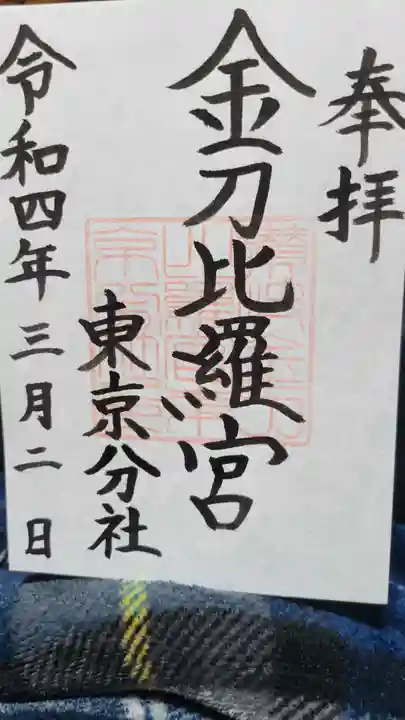 奉拝
金刀比羅宮
東京分社
令和四年三月二日